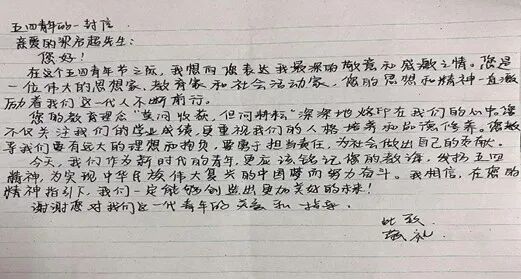 五四青年的一封信
亲爱的梁启超先生:
您好!
在这个五四青年节之际,我想向您表达我最深的敬意和感激之情。您是
一位伟大的思想家、教育家和社会活动家,您的思想和精神一直激
励着我们这一代人不断前行。
您的教育理念“莫问收获,但问耕耘”深深地烙印在我们的心中。您
不仅关注我们的学业成绩,更重视我们的人格培养和品德修养。您教
导我们要有远大的理想和抱负,要勇于担当责任,为社会做出自己的贡献。
今天,我们作为新时代的青年,更应该铭记您的教诲,发扬五四
精神,为实现中华民族伟大复兴的中国梦而努力奋斗。我相信,在您的
精神指引下,我们一定能够创造出更加美好的未来!
谢谢您对我们这一代青年的关爱和指导。
此致
敬礼